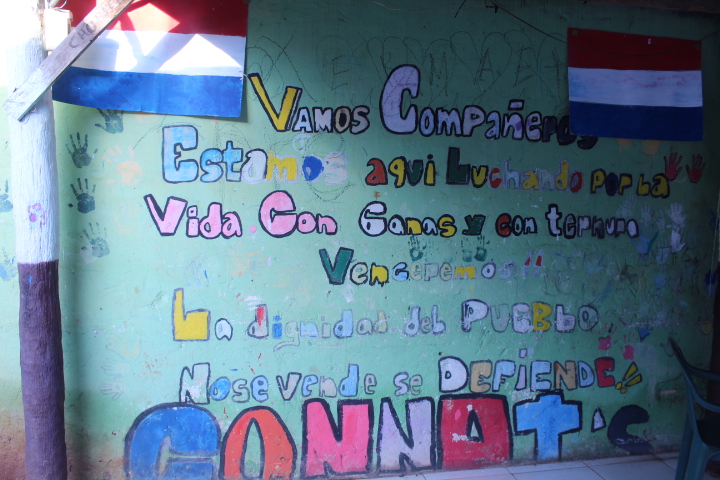 Vamos Compañeros
Estamos aqui Luchando por La
Vida. Con Ganas y con ternura
Venceremos!!
La dignidad del PUEBLO
No se vende se DEFIENDE!
CONNAT'S